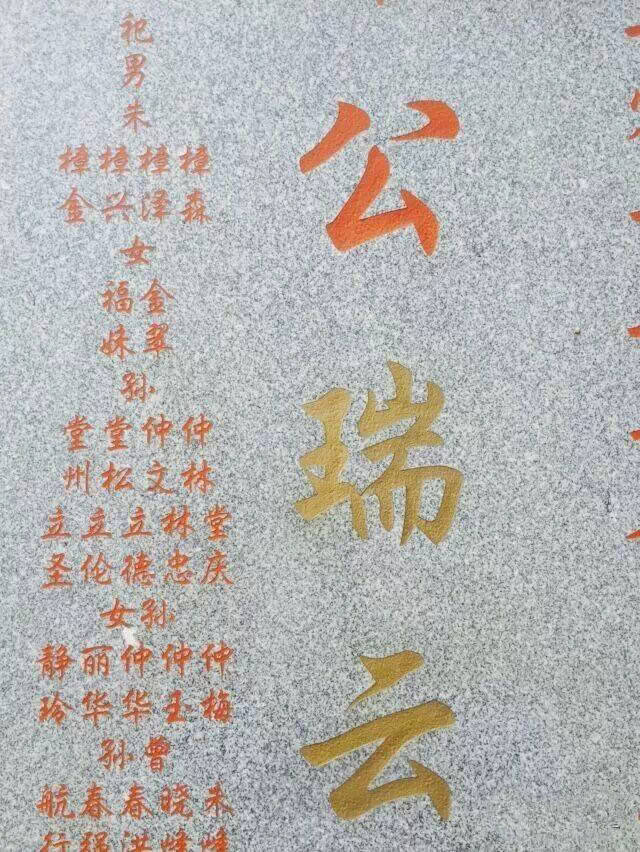 公瑞云
祀男朱
樟森
樟泽
樟兴
樟金
女
金翠
福妹
孙
仲林
仲文
堂松
堂州
堂庆
林忠
立德
立伦
立圣
孙女
仲梅
仲玉
仲华
丽华
静玲
曾孙
朱峰
晓峰
春洪
春强
航行